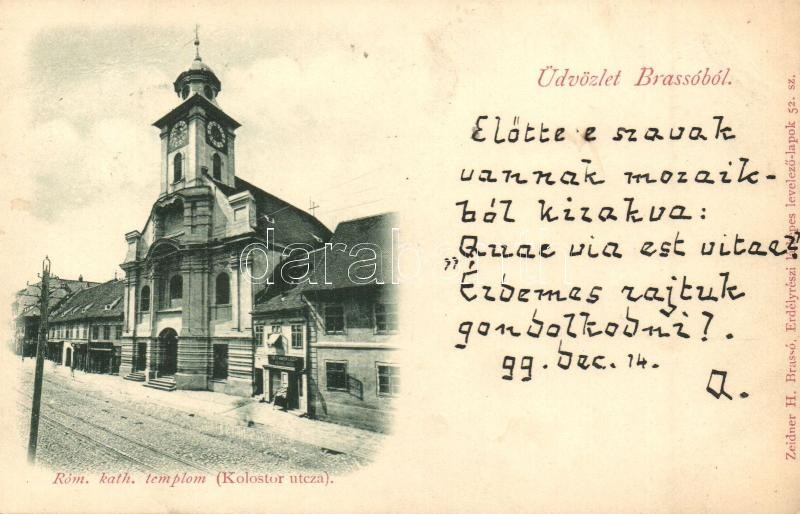 Üdvözlet Brassóból.
Előtte e szavak
vannak mozaik-
ból kirakva:
„Quae via est vitae?”
Érdemes rajtuk
gondolkodni?.
99. dec. 14.
A.
Róm. kath. templom (Kolostor utcza).
Zeidner H. Brassó, Erdélyrészi képes levelező-lapok 52. sz.
darabanth